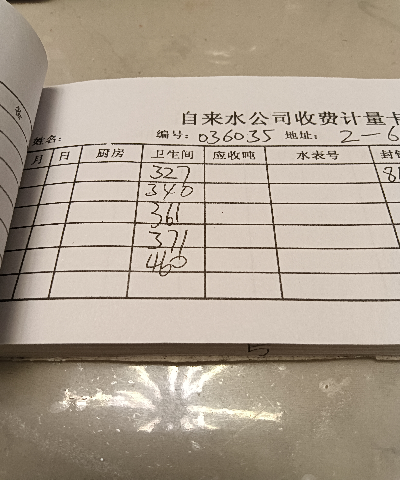 自来水公司收费计量卡
姓名: 编号: 036035 地址: 2-6
月 日 厨房 卫生间 应收吨 水表号 封
327 8
340
361
371
460